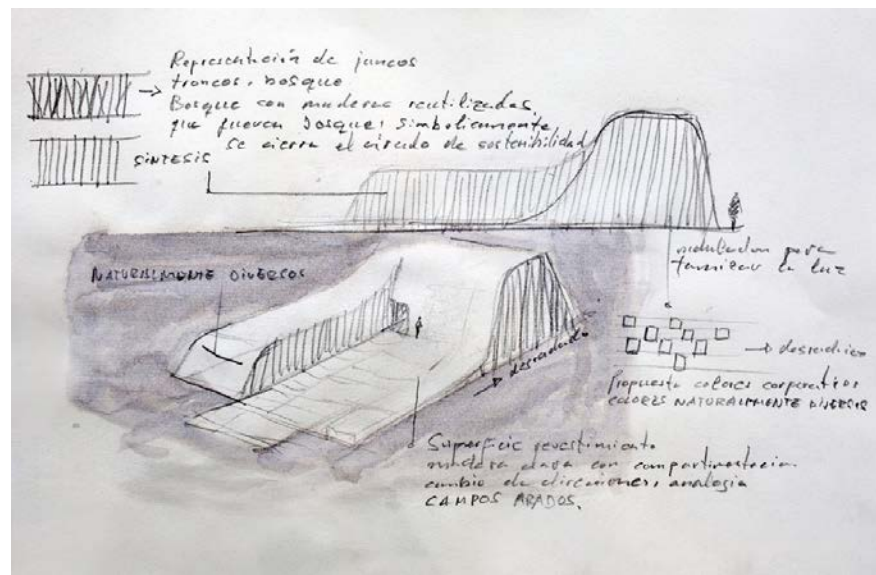 Representación de juncos
troncos, bosque
Bosque con maderas reutilizadas
que fueron bosque; simbolicamente
se cierra el circulo de sostenibilidad
SINTESIS
NATURALMENTE DIVERSOS
para
tamizar la luz
degradado
Propuesta colores corporativos
COLORES NATURALMENTE DIVERSOS
Superficie revestimiento
madera clara con
cambio de direcciones, analogia
CAMPOS ARADOS.